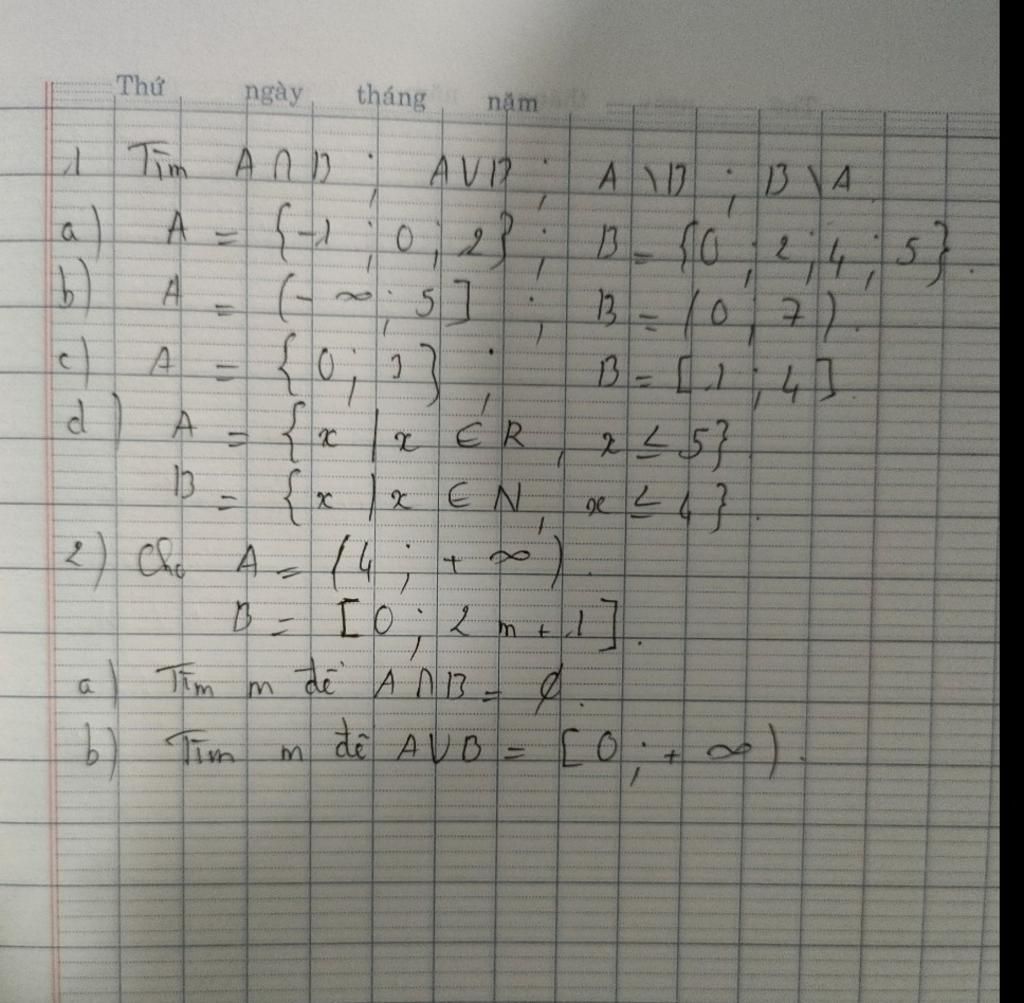 Thứ ngày tháng năm
1 Tìm A ∩ B ; A ∪ B ; A \ B ; B \ A
a) A = {-1 ; 0 ; 2} ; B = {0 ; 2 ; 4 ; 5}.
b) A = (- ∞ ; 5] ; B = (0 ; 7).
c) A = {0 ; 3} ; B = [1 ; 4].
d) A = {x | x ∈ R, x ≤ 5}
B = {x | x ∈ N, x ≤ 4}.
2) Cho A = (4 ; + ∞).
B = [0 ; 2m + 1].
a) Tìm m để A ∩ B = ∅.
b) Tìm m để A ∪ B = [0 ; + ∞).